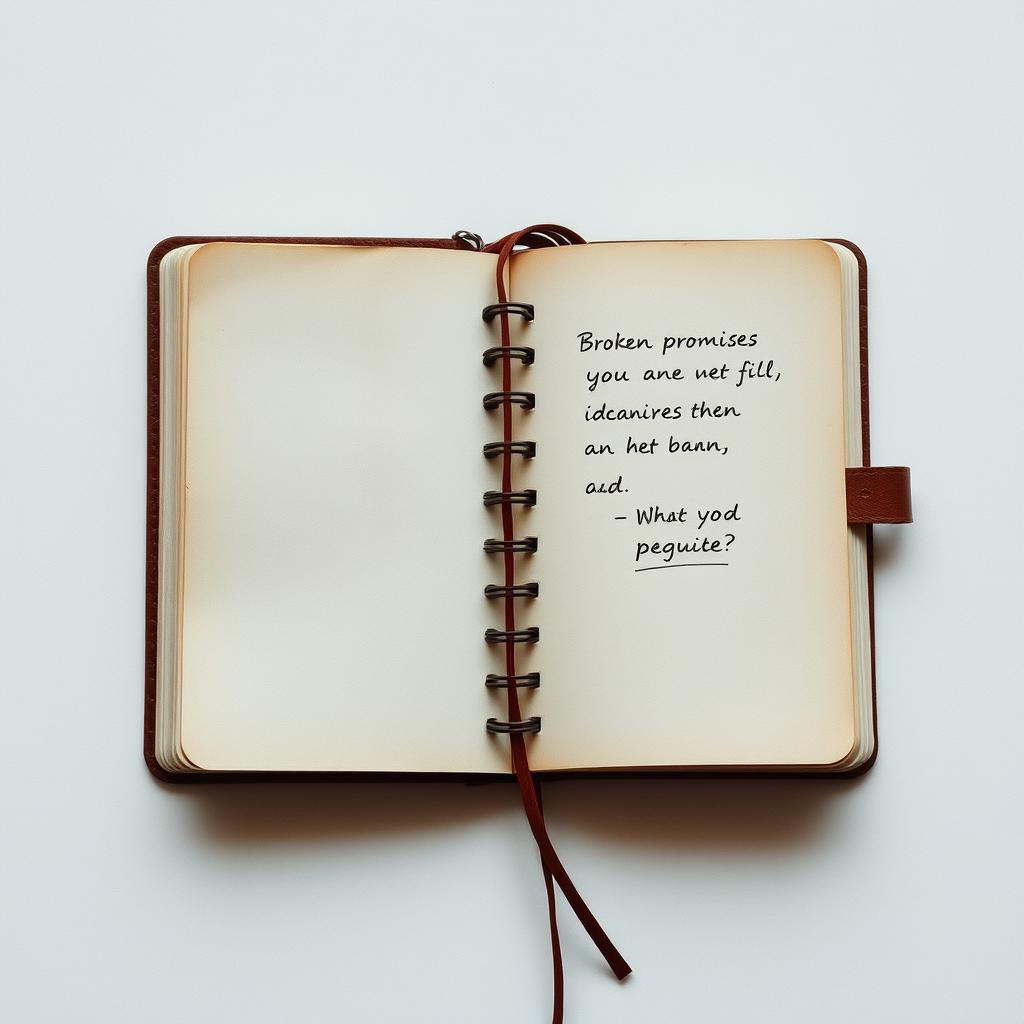 Broken promises
you ane net fill,
idcanires then
an het bann,
aad.
– What yod
peguite?